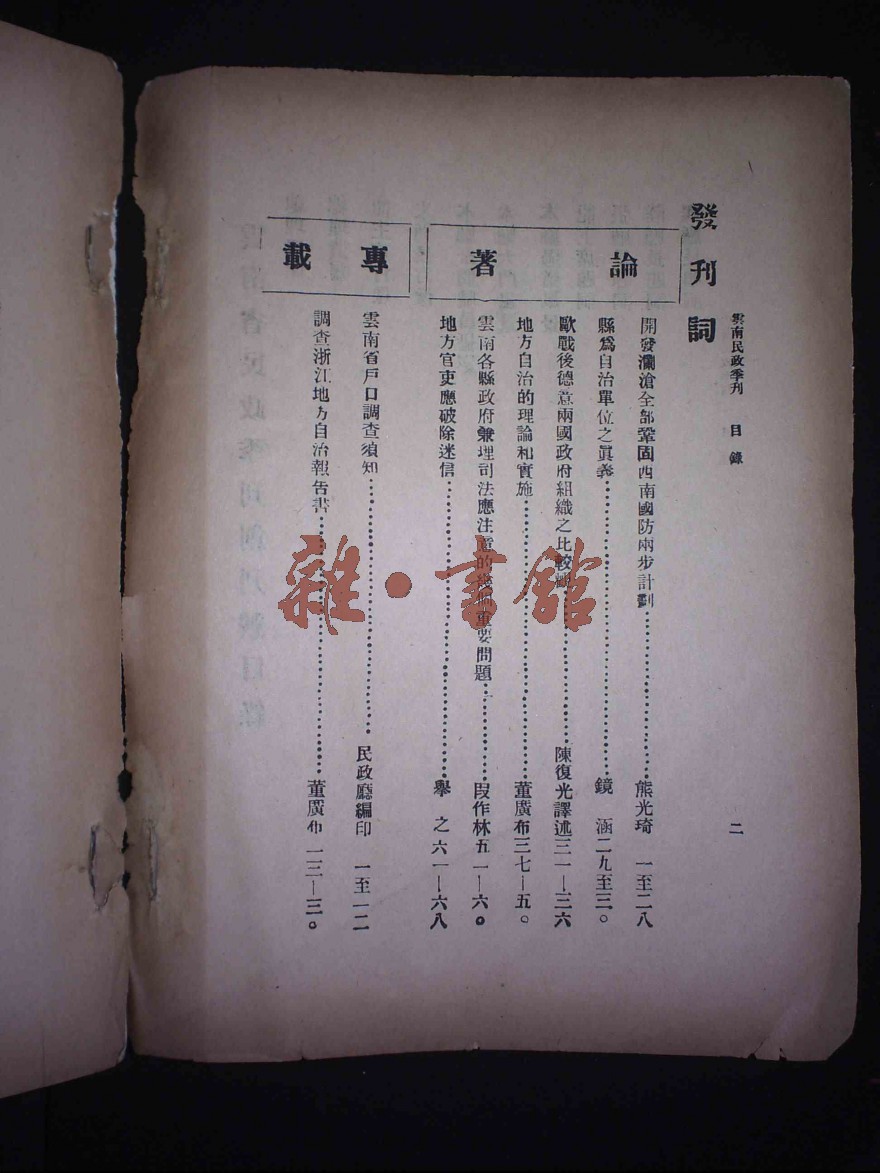 雲南民政季刊 目錄 二
發刊詞
論著
開發瀾滄全部鞏固西南國防兩步計劃……熊光琦 一至二八
縣為自治單位之眞義……鏡 涵二九至三〇
歐戰後德意兩國政府組織之比較觀……陳復光譯述三一—三六
地方自治的理論和實施……董廣布三七—五〇
雲南各縣政府兼理司法應注意的幾個重要問題……段作林五一—六〇
地方官吏應破除迷信……舉 之六一—六八
專載
雲南省戶口調查須知……民政廳編印 一至一二
調查浙江地方自治報告書……董廣布 一三—三〇
雜·書館